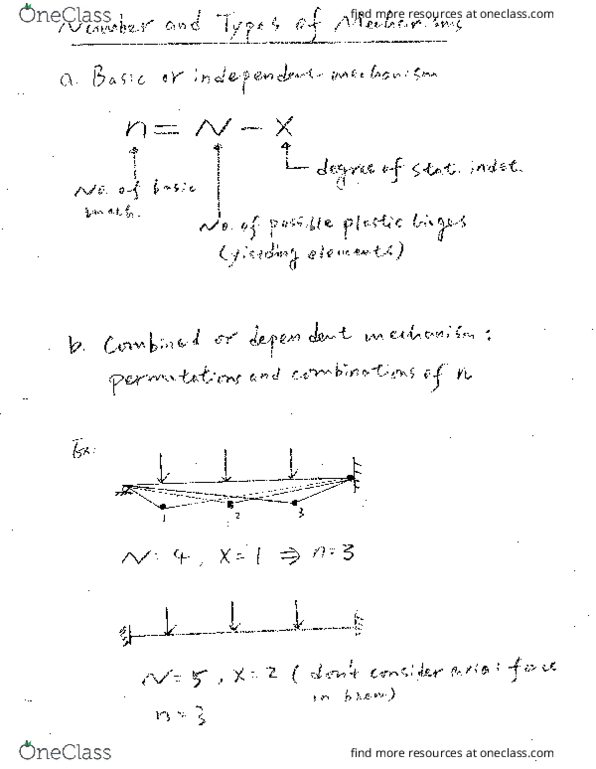 OneClass
find more resources at oneclass.com
Number and Types of Mechanisms
a. Basic or independent mechanism
n = N - X
degree of stat. indet.
No. of basic
mech.
No. of possible plastic hinges
(yielding elements)
b. Combined or dependent mechanism:
permutations and combinations of n
Ex:
1 2 3
N: 4, X=1 ⇒ n=3
N=5, X=2 (don't consider axial force
in beam)
n=3
OneClass
find more resources at oneclass.com